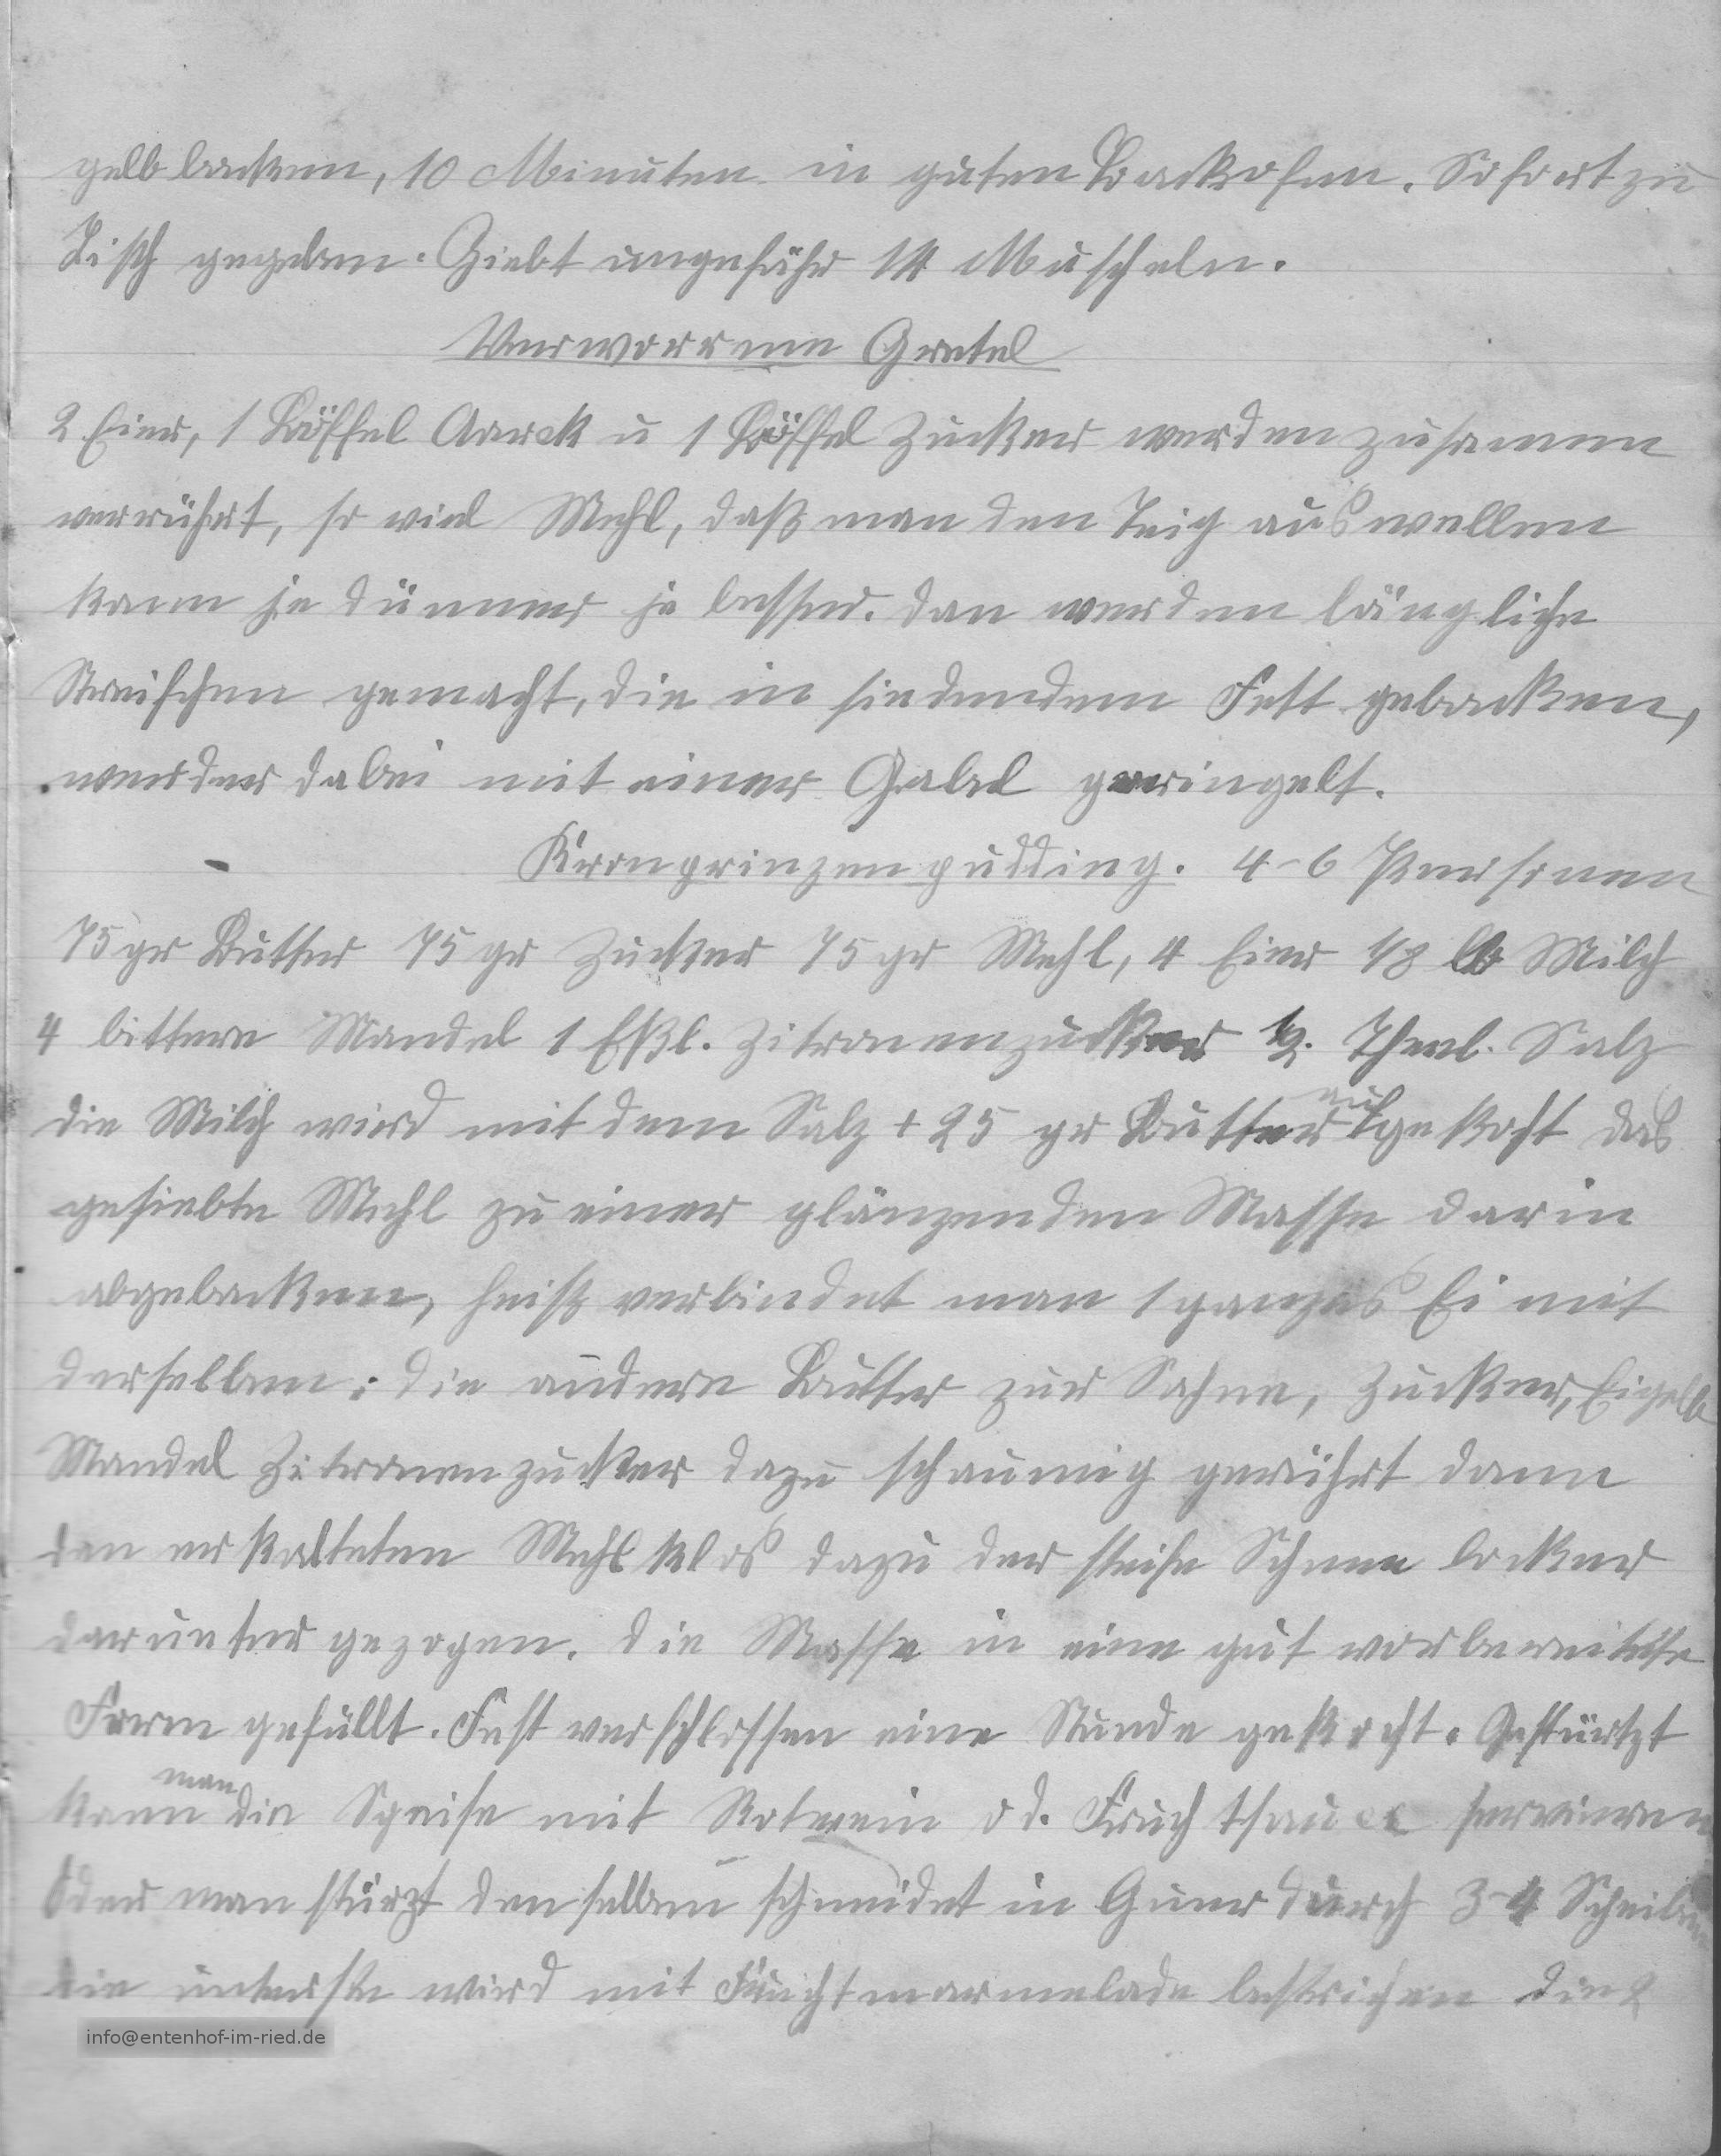 gelb backen, 10 Minuten in guten Backofen. Sofort zu
Tisch gegeben. Giebt ungefähr 14 Muscheln.
Verworrene Gretel
2 Eier, 1 Löffel Aarck u 1 Löffel Zucker werden zusamen
verrührt, so viel Mehl, daß man den Teig auswellen
kann je dünner je besser. dan werden längliche
Streifchen gemacht, die in siedendem Fett gebacken,
werden dabei mit einer Gabel geringelt.
Kronprinzenpudding. 4-6 Personen
75 gr Butter 75 gr Zucker 75 gr Mehl, 4 Eier 1/8 lb Milch
4 bittere Mandel 1 Eßl. Zitronenzucker 1/2. Theel. Salz
die Milch wird mit dem Salz + 25 gr Butter aufgekocht das
gesiebte Mehl zu einer glänzenden Masse darin
abgebacken, heiß verbindet man 1 ganzes Ei mit
derselben; die andere Butter zur Sahne, Zucker, Eigelb
Mandel Zitronenzucker dazu schaumig gerührt dann
den erkalteten Mehlklos dazu der steife Schnee locker
darunter gezogen. die Masse in eine gut vorbereitete
Form gefüllt. Fest verschlossen eine Stunde gekocht. Gestürtzt
kann man die Speise mit Rotwein od. Fruchtsauce servieren
Oder man stürzt denselben schneidet in Quer durch 3-4 Scheiben
die unterste wird mit Fruchtmarmelade bestrichen die 2
info@entenhof-im-ried.de